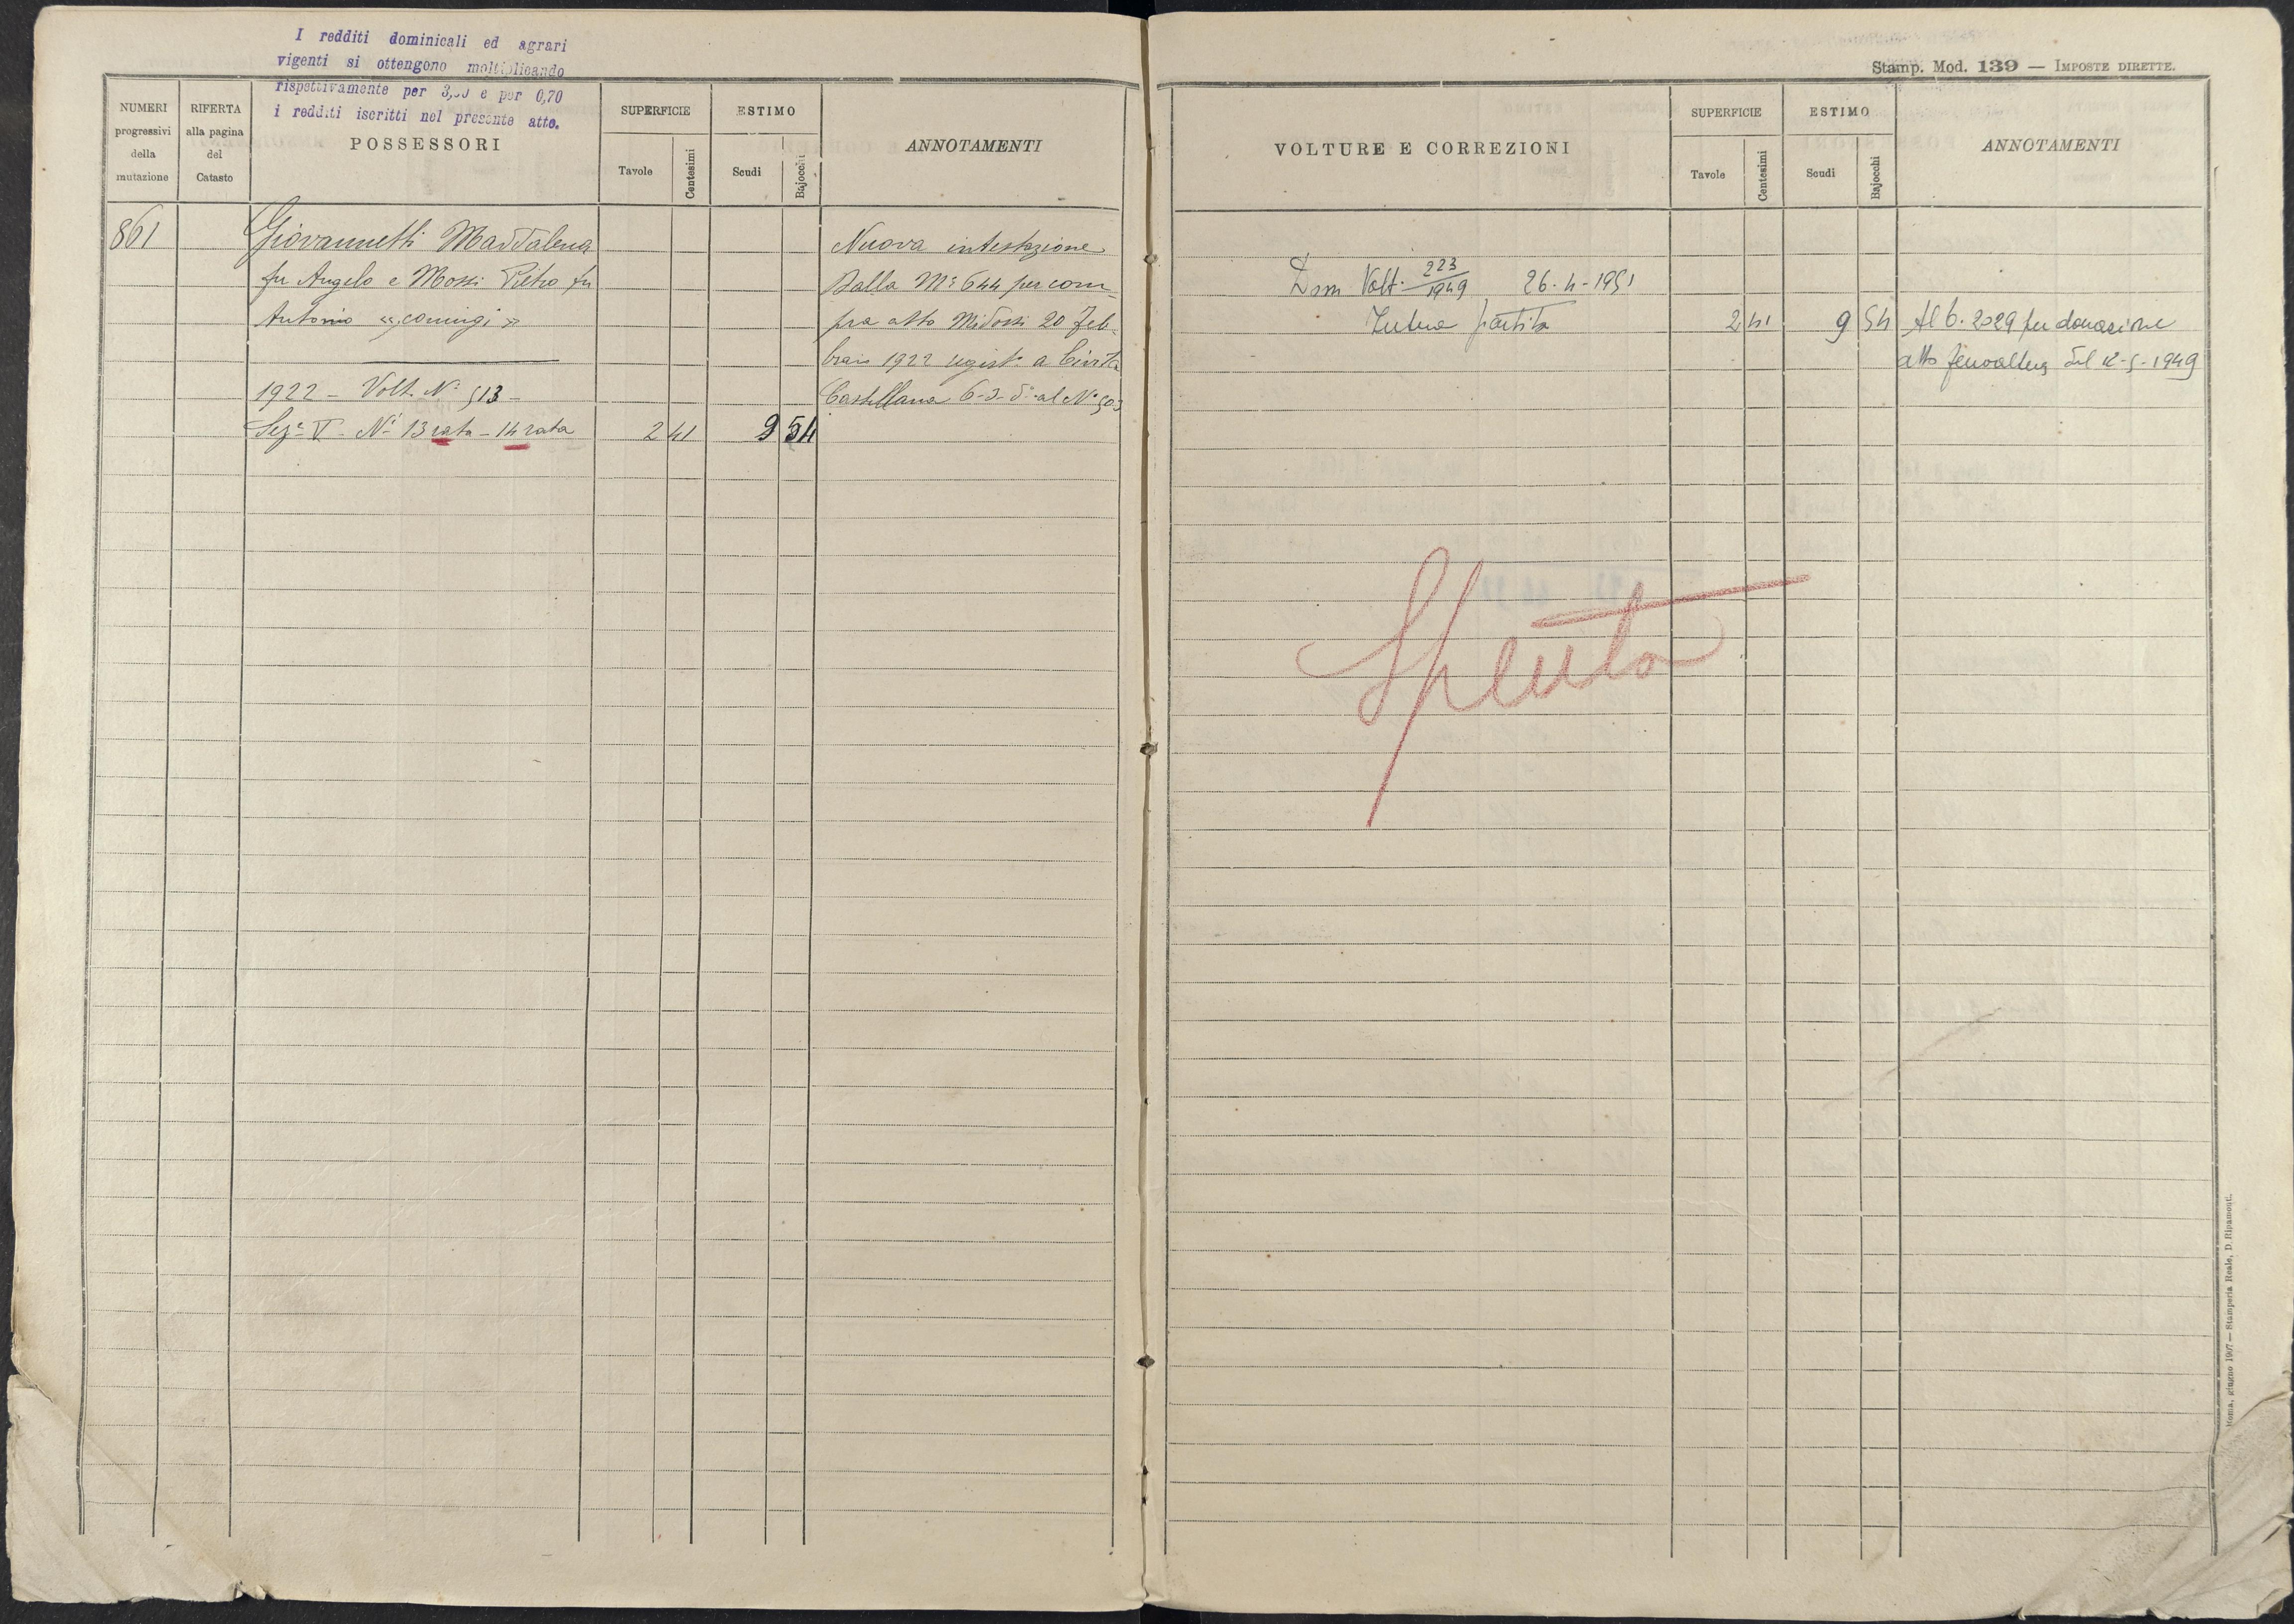 I redditi dominicali ed agrari
vigenti si ottengono moltiplicando
rispettivamente per e per 0,70
i redditi iscritti nel presente atto.
NUMERI
progressivi
della
mutazione
RIFERTA
alla pagina
del
Catasto
POSSESSORI
SUPERFICIE
Tavole
Centesimi
ESTIMO
Scudi
Bajocchi
ANNOTAMENTI
861
Giovannetti Maddalena
fu Angelo e Mossi Pietro fu
Antonio « coniugi »
1922 - Volt. N° 513 -
Sez. V - N' 13 rata - 14 rata
2 41
9 54
Nuova intestazione
Dalla M° 644 per com-
pra atto Midossi 20 Feb-
braio 1922 regist° a Civita
Castellana 6-3- d° al N° 503
Stamp. Mod. 139 — IMPOSTE DIRETTE.
VOLTURE E CORREZIONI
SUPERFICIE
Tavole
Centesimi
ESTIMO
Scudi
Bajocchi
ANNOTAMENTI
Dom Volt. 223/1949 26-4-1951
Intera partita
2 41
9 54
Al 6. 2029 per donazione
atto del 12-5-1949
Spenta
Roma, giugno 1907 — Stamperia Reale, D. Ripamonti.